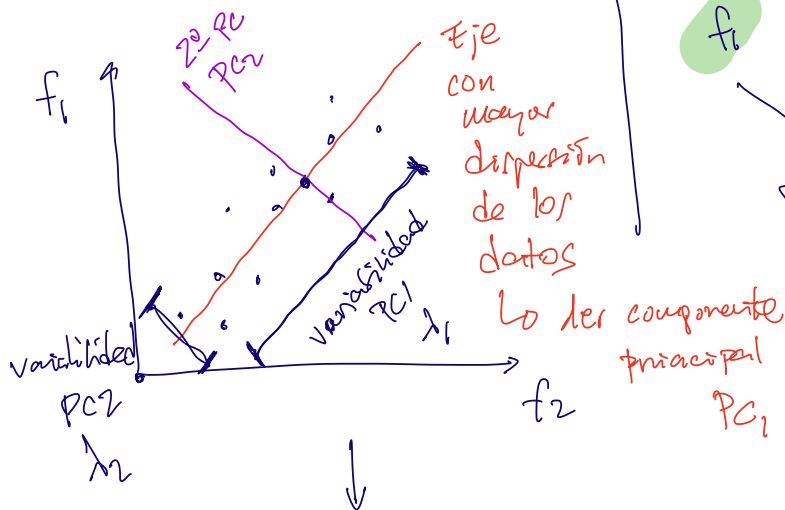 2º PC
PC2
f₁
Eje
con
mayor
dispersión
de los
datos
Lo 1er componente
principal
PC₁
variabilidad
PC1
λ₁
variabilidad
PC2
λ₂
f₂
f₁